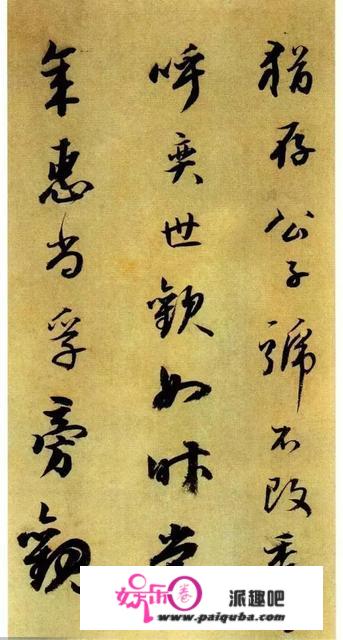 猶存公子號不改秀
呼奕世歡如昨當
年惠尚孚旁觀
娱乐圈 派趣吧
www.paiquba.com